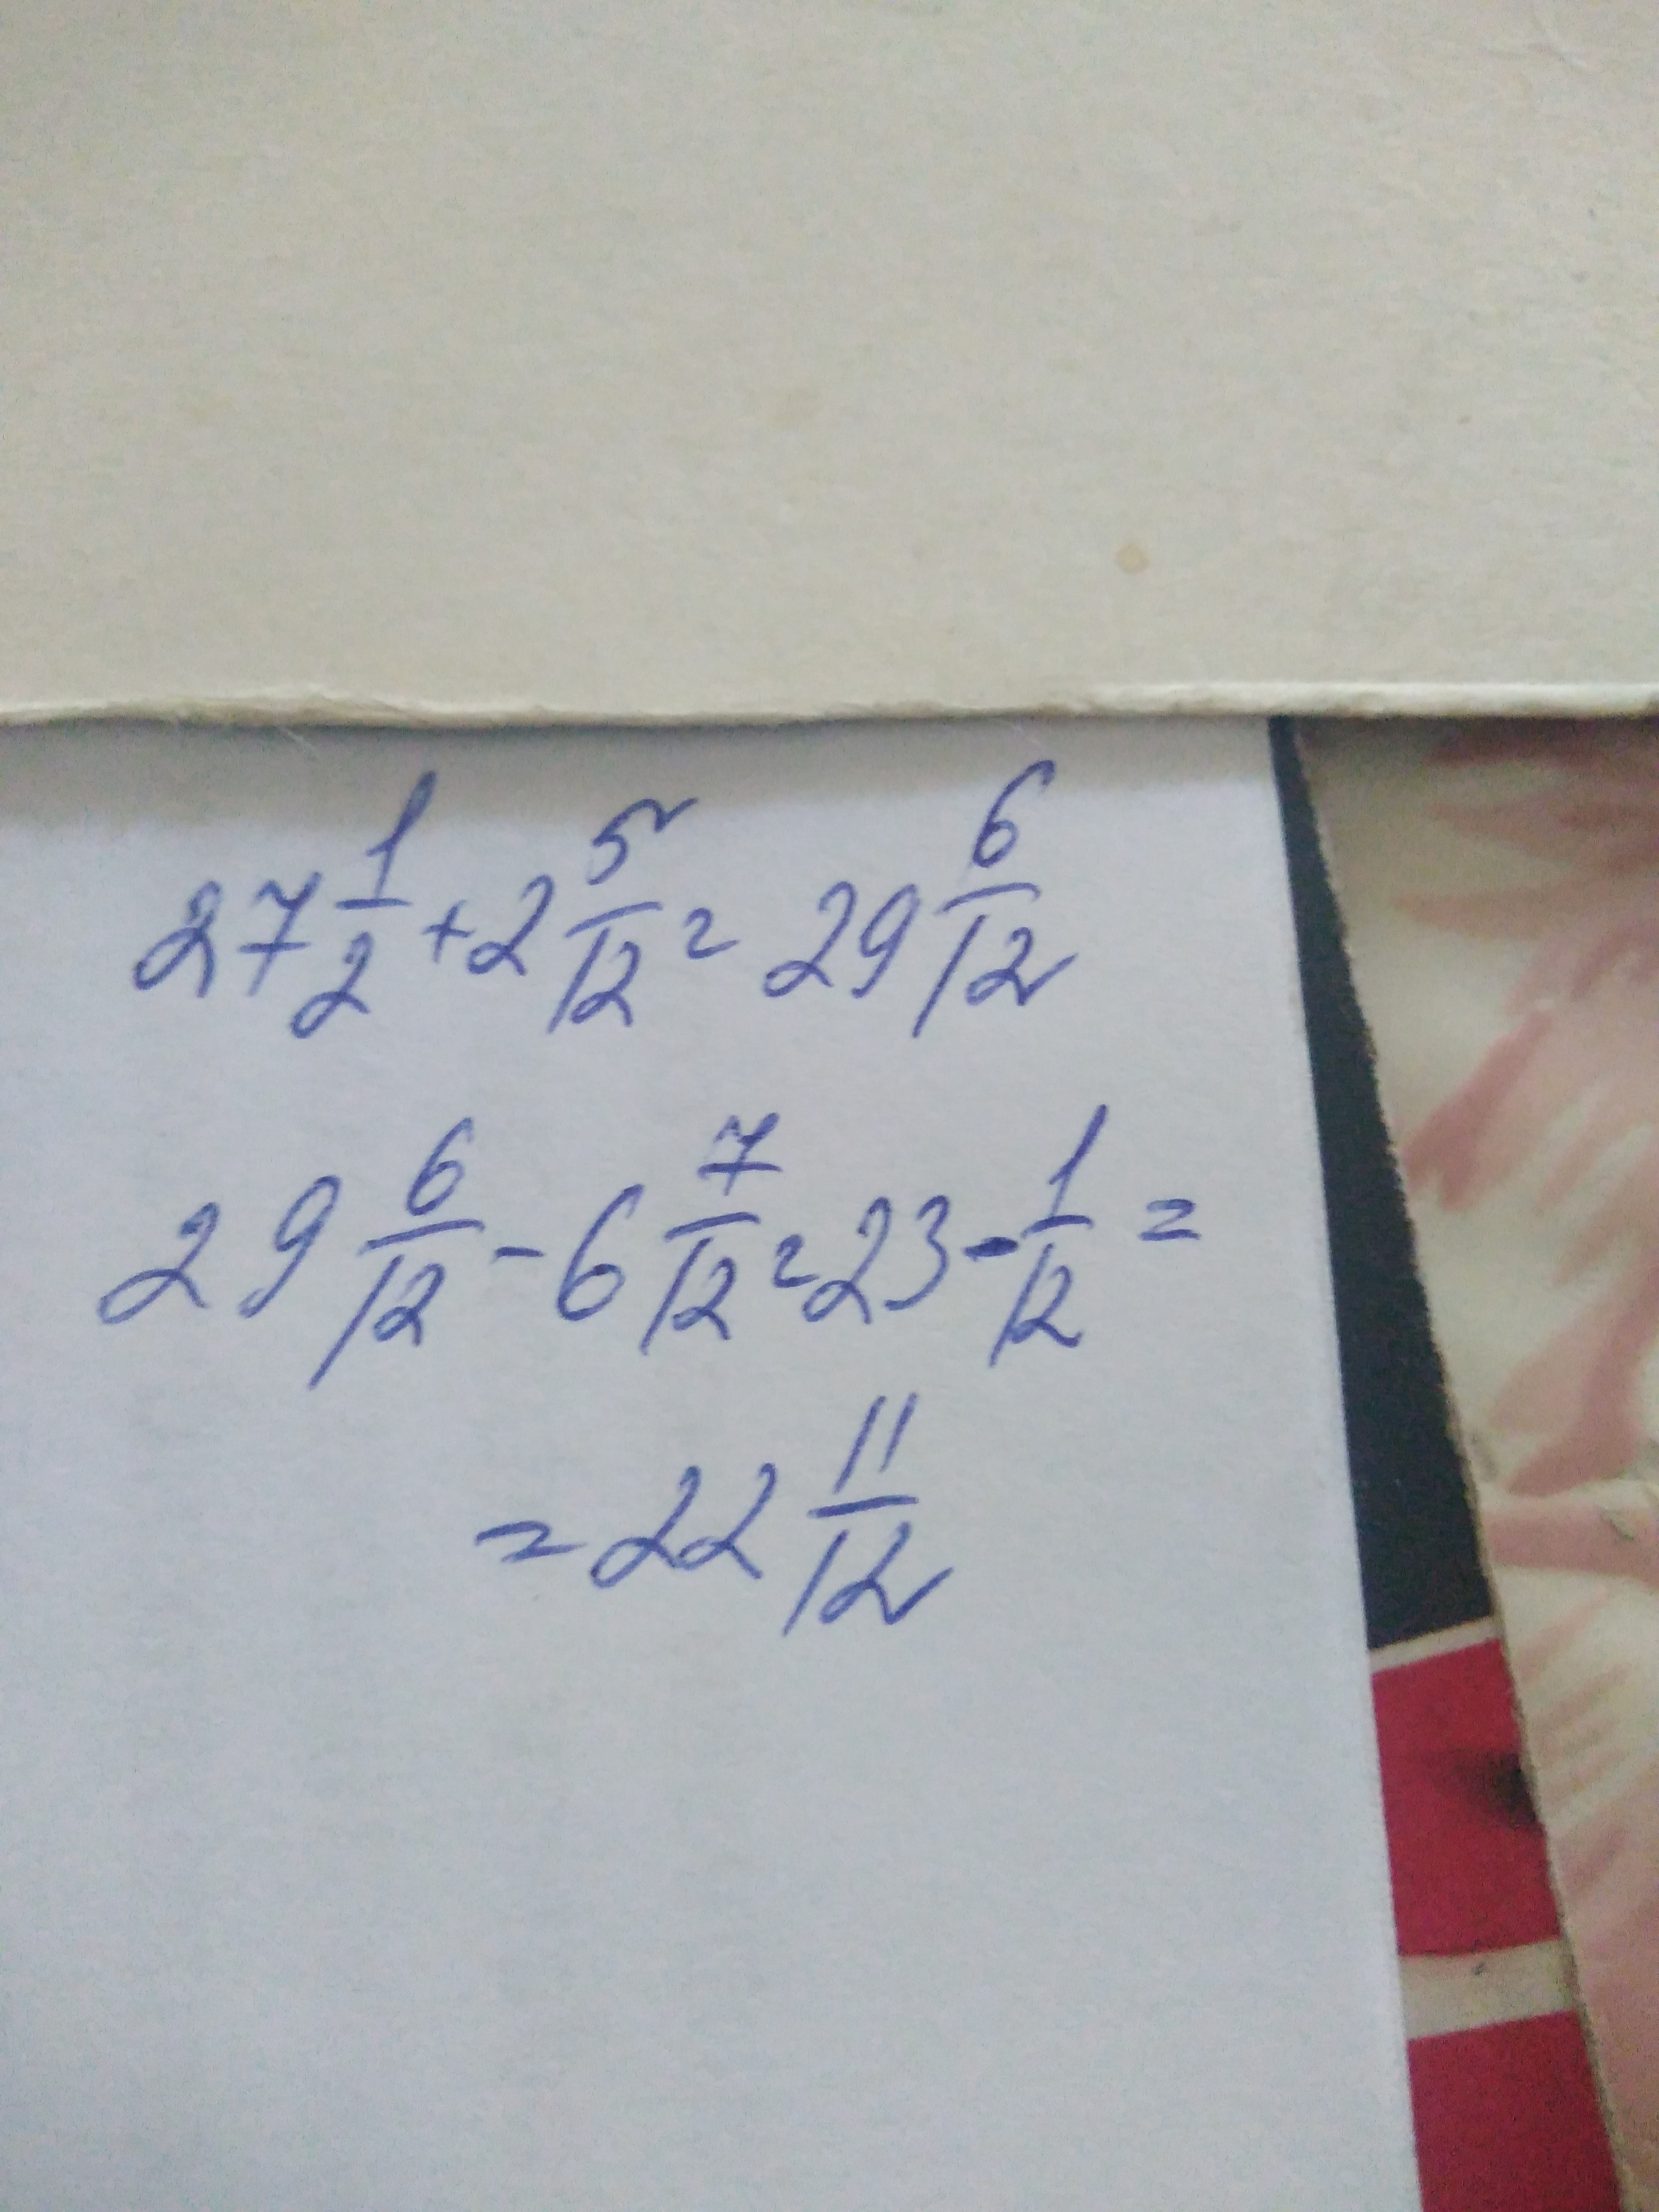 27 1/2 + 2 5/12 = 29 6/12
29 6/12 - 6 7/12 = 23 - 1/12 =
= 22 11/12